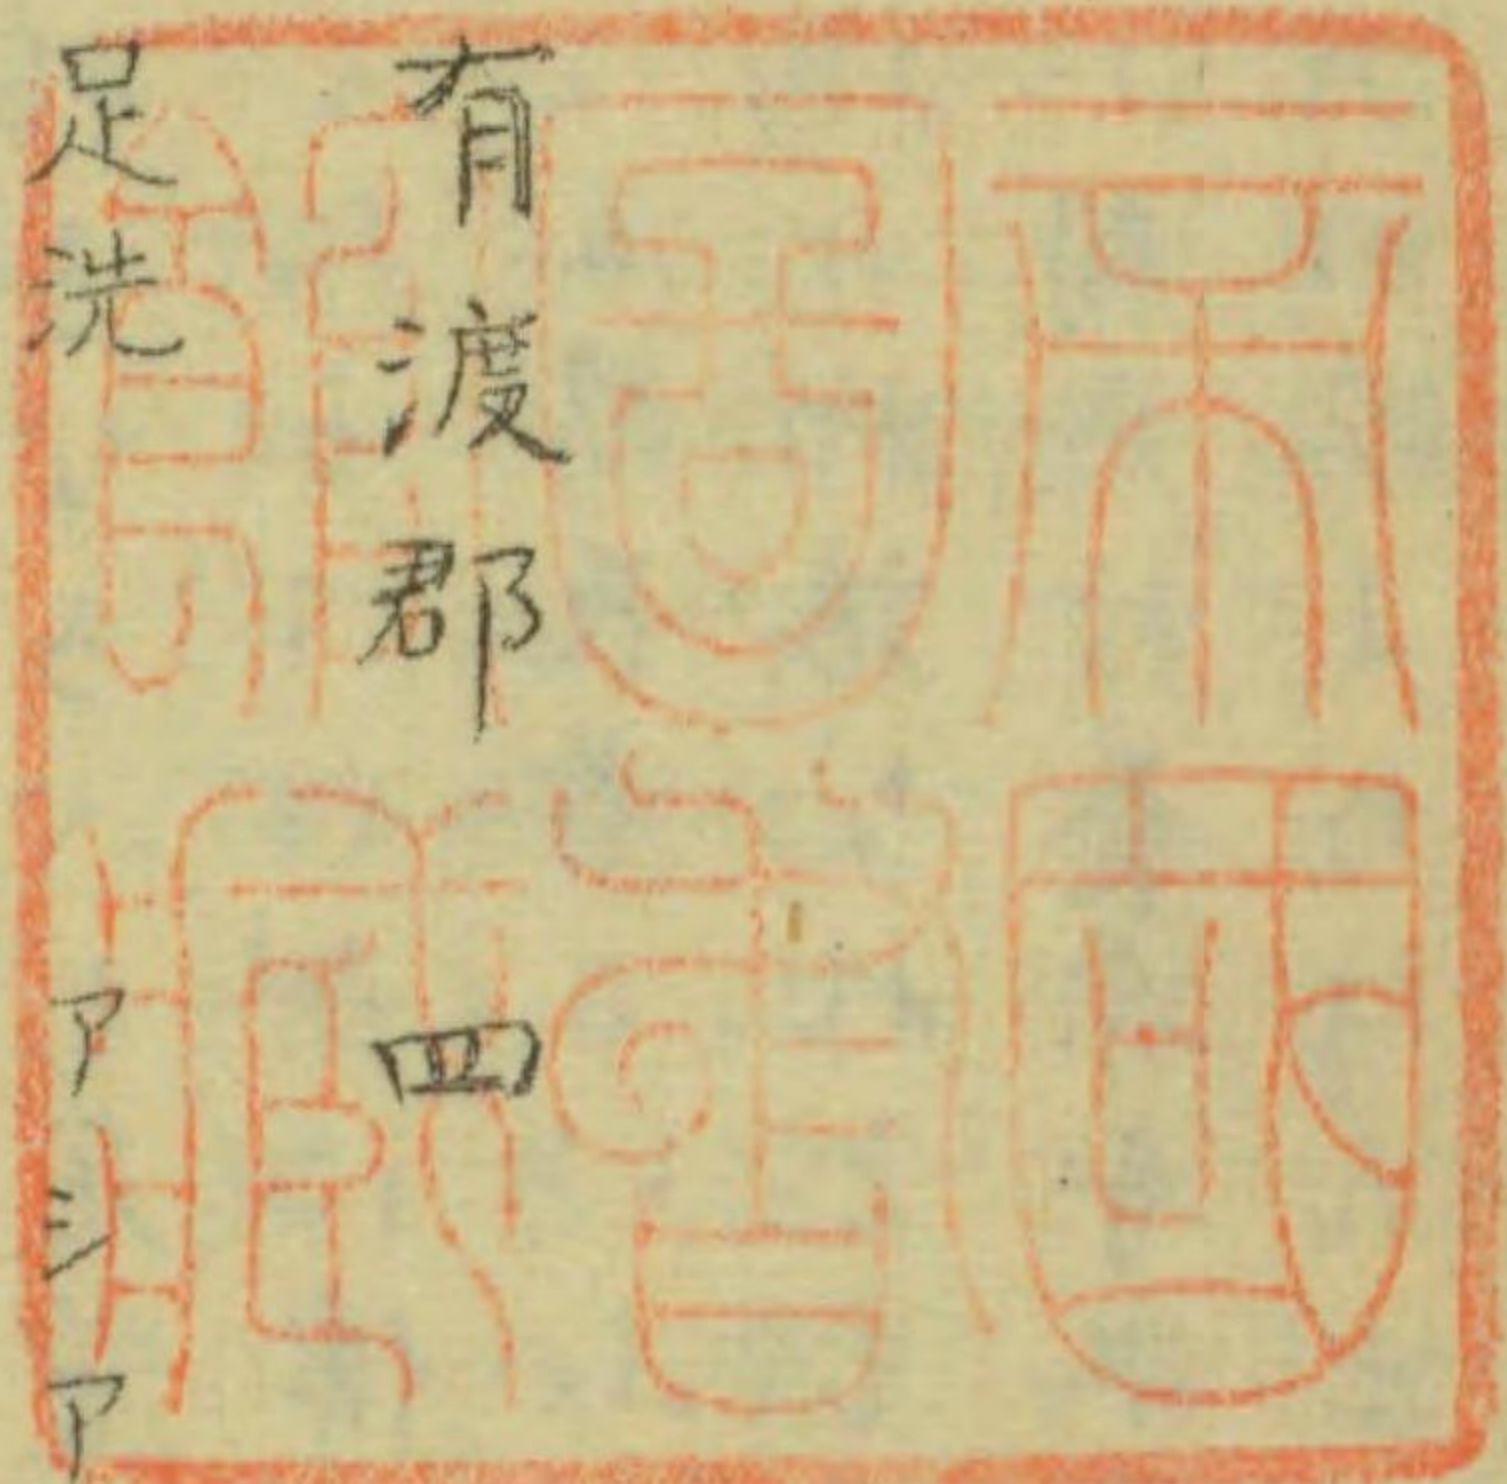 帝國
圖書
館藏
有渡郡 四
足洗 アシア